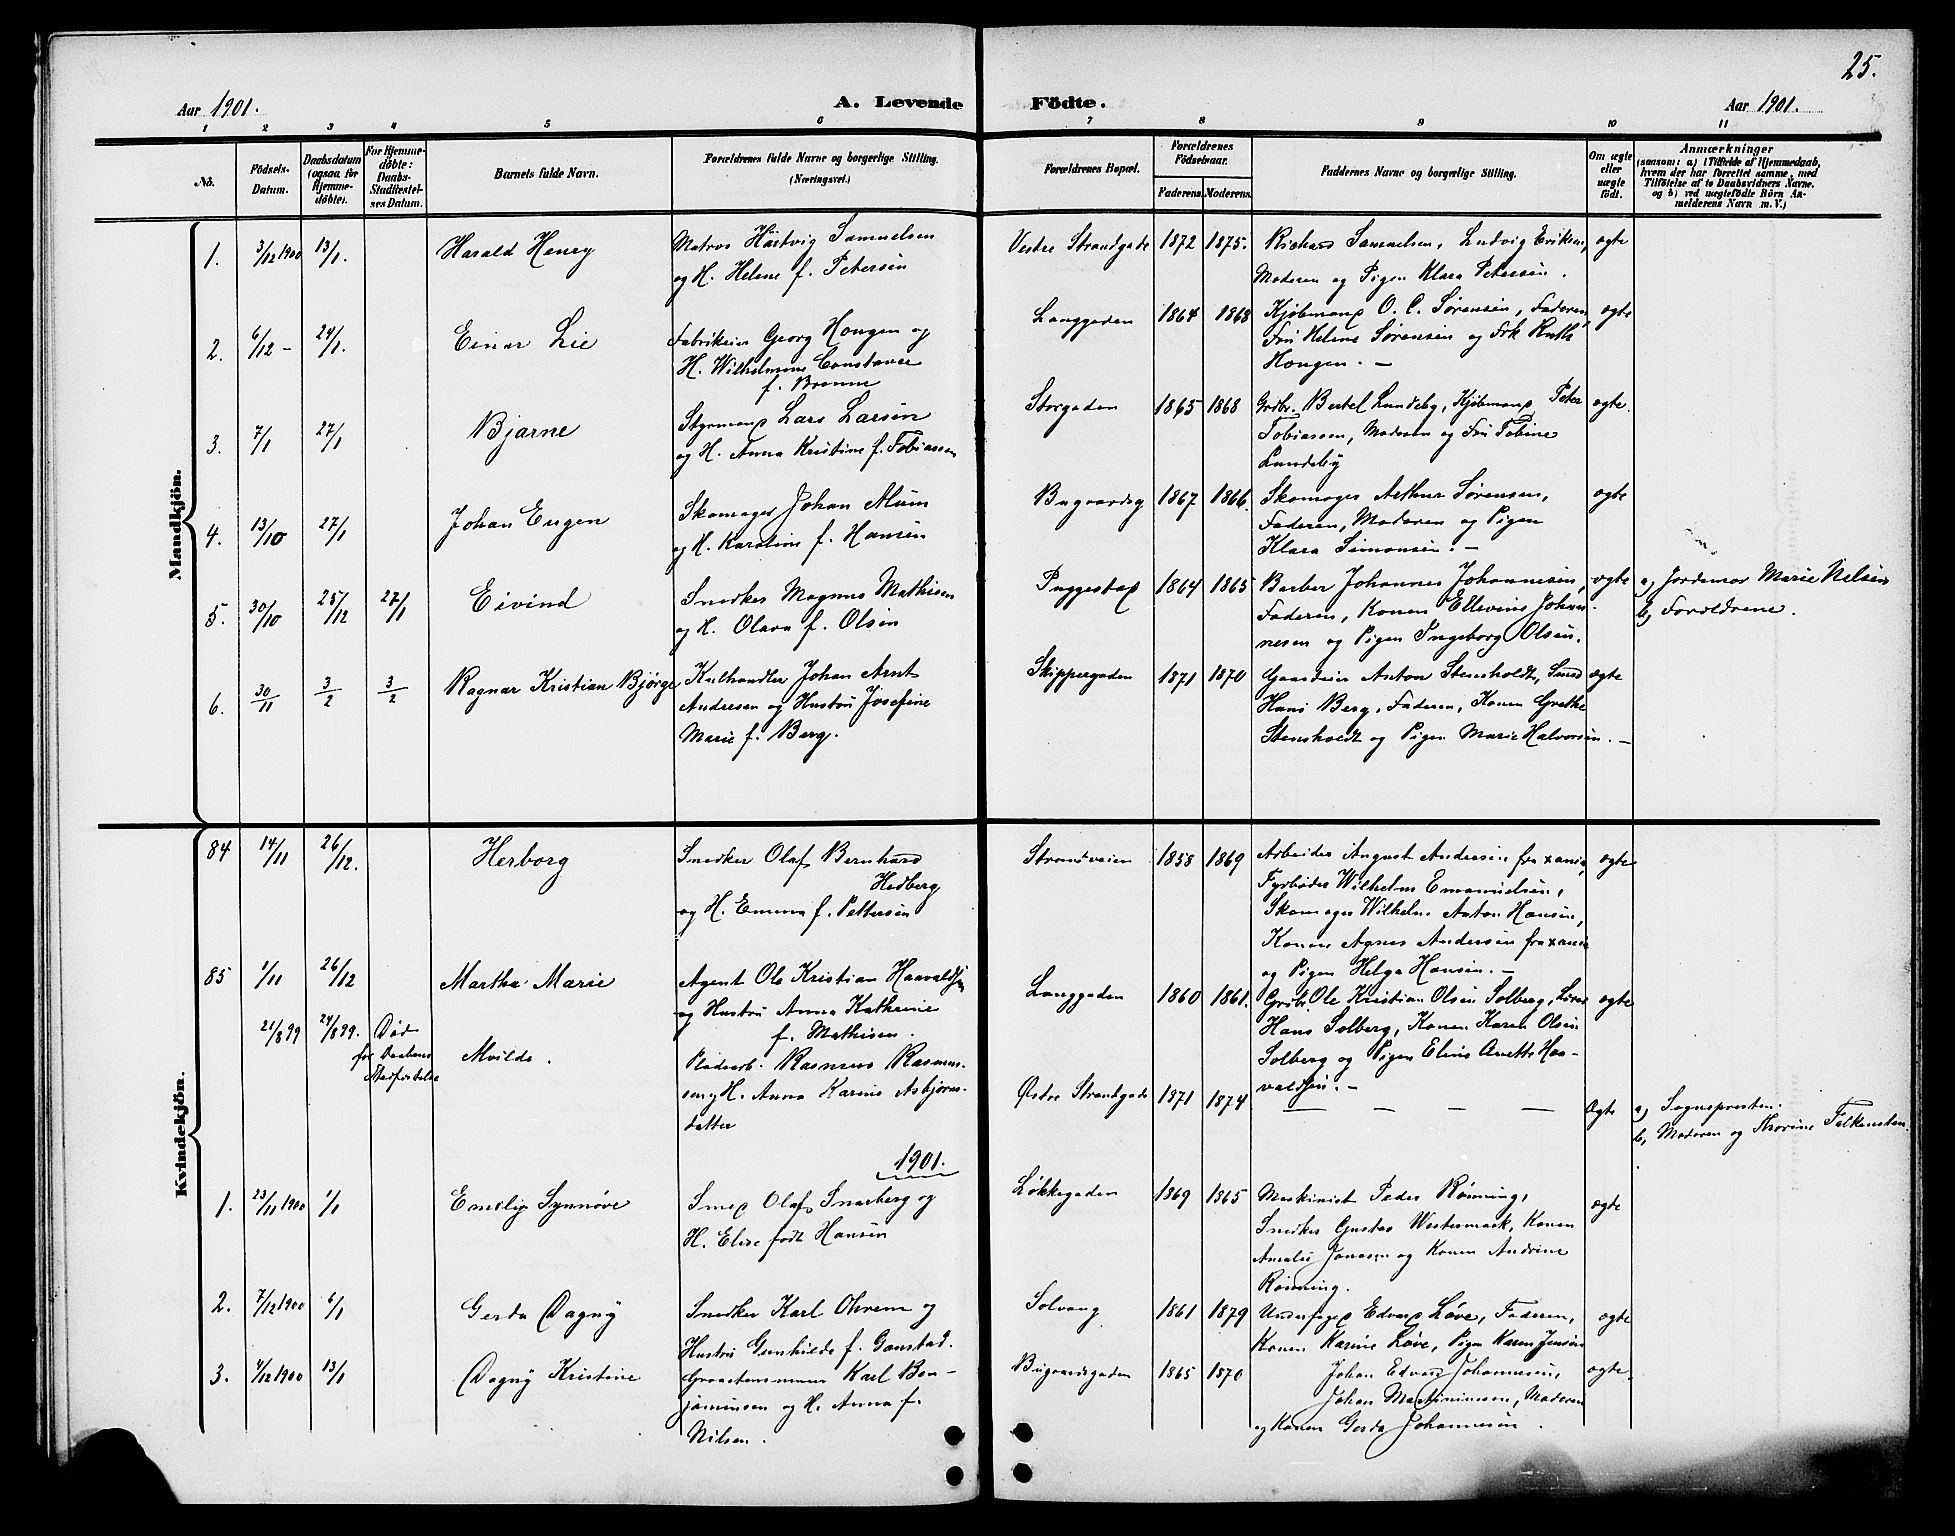 25.
Aar 1901. A. Levende Födte. Aar 1901.
1 2 3 4 5 6 7 8 9 10 11
No.
Födsels-
Datum.
Daabsdatum
(ogsaa for
Hjemme-
döbte).
For Hjemme-
döbte:
Daabs-
Stadfæstel-
ses Datum.
Barnets fulde Navn.
Forældrenes fulde Navne og borgerlige Stilling.
(Næringsvei.)
Forældrenes Bopæl.
Forældrenes
Födselsaar.
Faderens. Moderens.
Faddernes Navne og borgerlige Stilling.
Om ægte
eller
uægte
födt.
Anmærkninger
(saasom: a) i Tilfælde af Hjemmedaab,
hvem der har forrettet samme, med
Tilföielse af to Daabsvidners Navne.
og b) ved uægtefödte Börn An-
melderens Navn m. V.)
Mandkjön.
1. 3/12 1900 13/1. Harald Henry
Matros Hartvig Samuelsen
og H. Helene f. Petersen
Vestre Strandgade 1872 1875.
Richard Samuelsen, Ludvig Eriksen,
Moderen og Pigen Klara Petersen.
ægte
2. 6/12 – 24/1. Einar Lie
Fabrikeier Georg Hougen og
H. Wilhelmine Constance
f. Bromme
Langgaden 1864 1868
Kjöbmand O. C. Sørensen, Faderen,
Fru Helene Sørensen og Frk Ruth
Hougen. –
ægte
3. 7/1 27/1 Bjarne
Styrmand Lars Larsen
og H. Anna Kristine f. Tobiassen
Storgaden 1865 1868
Grdbr. Bertel Lundeby, Kjøbmand Peter
Tobiassen, Moderen og Fru Tobine
Lundeby
ægte.
4. 13/10 27/1 Johan Eugen
Skomager Johan Alum
og H. Karoline f. Hansen
Bugaardsg 1867 1866.
Skomager Arthur Sørensen,
Faderen, Moderen og Pigen
Klara Simonsen. –
ægte
5. 30/10 25/12 27/1 Eivind
Snedker Magnus Mathisen
og H. Olava f. Olsen
Puggestad 1864 1865
Barber Johannes Johannesen,
Faderen, Konen Ellevine Johan-
nesen og Pigen Ingeborg Olsen.
ægte
a) Jordemor Marie Nelsen
b) Forældrene.
6. 30/11 3/2 3/2 Ragnar Kristian Bjørge
Kulhandler Johan Arnt
Andresen og Hustru Josefine
Marie f. Berg.
Skippergaden 1871 1870
Gaardeier Anton Stensholdt, Smed
Hans Berg, Faderen, Konen Grethe
Stensholdt og Pigen Marie Halvorsen. –
ægte
Kvindekjön.
84 14/11 26/12. Herborg
Snedker Olaf Bernhard
Hedberg
og H. Emma f. Pettersen
Strandveien 1858 1869
Arbeider August Andersen fra xania,
Fyrbøder Wilhelm Emanuelsen,
Skomager Wilhelm Anton Hansen,
Konen Agnes Andersen fra xania
og Pigen Helga Hansen. –
ægte
85 1/11 26/12 Martha Marie
Agent Ole Kristian Haavaldsen
og Hustru Anna Kathrine
f. Mathisen.
Langgaden 1860 1861.
Grdbr. Ole Kristian Olsen Solberg,
Hans Solberg, Konen Karen Olsen
Solberg og Pigen Eline Anette Haa-
valdsen. –
ægte
21/8 99 24/8 99. Død
før Daabens
Stadfæstelse
Alvilde.
Pladearb. Rasmus Rasmus-
sen og H. Anna Karine Asbjørns-
datter
Østre Strandgade 1871 1874
– – – –
Ægte
a) Sognepresten.
b, Moderen og Thorine Falkensten.
1901.
1. 23/11 1900 1/1 Emely Synnøve
Smed Olaf Snarberg og
H. Elise født Hansen
Løkkegaden 1869 1865
Maskinist Peder Rønning,
Snedker Gustav Westermark, Konen
Amalie Jonasen og Konen Andrine
Rønning.
ægte
2. 7/12 1900 6/1 Gerda Dagny
Snedker Karl Ohrem og
Hustru Gunhilde f. Gonstad.
Solvang 1861 1879
Underfoged Edvard Løve, Faderen,
Konen Karine Løve, Pigen Karen Jensen
ægte
3. 4/12 1900 13/1 Dagny Kristine
Graastensminer Karl Ben-
jaminsen og H. Anna f.
Nilsen.
Bugaardsgaden 1865 1870
Johan Edvard Johannesen,
Johan Martiniussen, Moderen
og Konen Gerda Johannesen.
ægte.